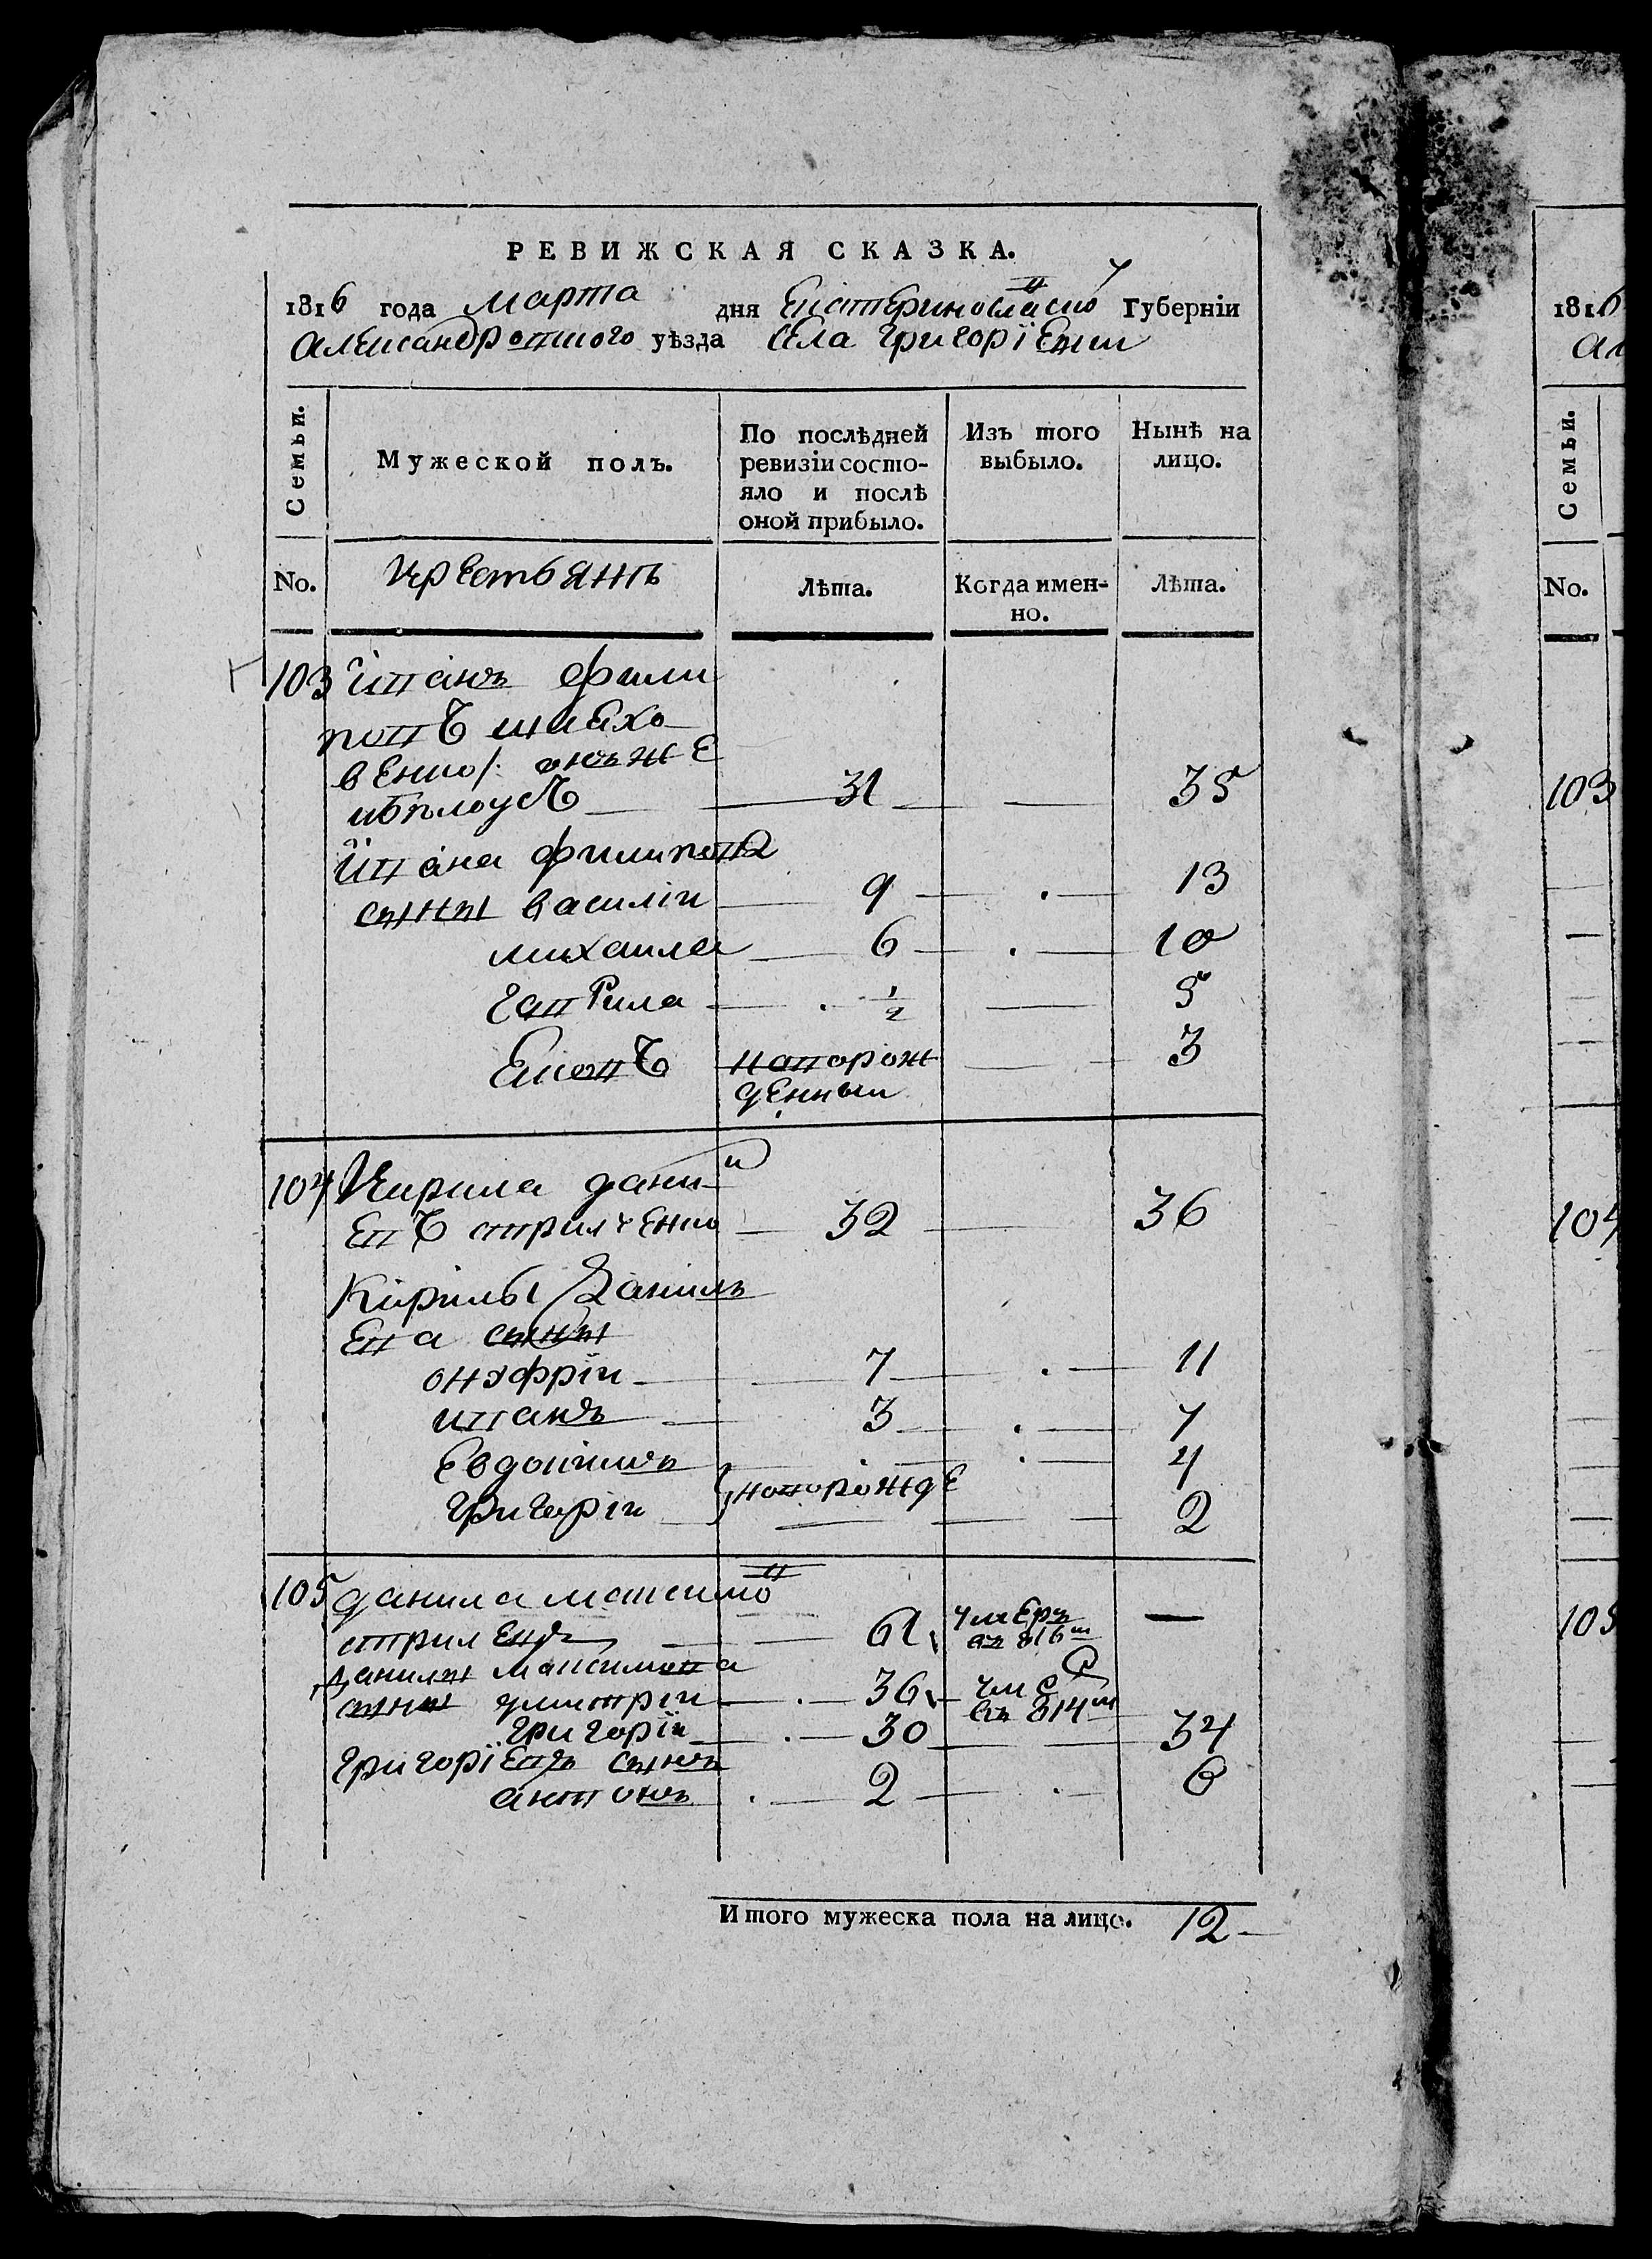 РЕВИЖСКАЯ СКАЗКА.
1816 года марта дня Екатеринославской Губерніи
Александровского уѣзда Села Григорїевки
Семьи.
Мужеской полъ.
По послѣдней
ревизіи состо-
яло и послѣ
оной прибыло.
Изъ того
выбыло.
Нынѣ на
лицо.
No.
крестьянъ
Лѣта.
Когда имен-
но.
Лѣта.
103 Иванъ Фили
повъ
венко/: онъ же
31 35
Ивана Филипова
сыны Василіи 9 13
Михаила 6 10
Гаврила ½ 5
новорож 3
денныи
104 Кирила дани
евъ стрилченко 32 36
Кирилы Данилъ
ева сыны
Онуфріи 7 11
Иванъ 3 7
Евдокимъ 4
Григоріи новорожде 2
105 Данила Максимов
61 умеръ —
въ 816м
Данилы Максимова
сыны Дмитріи 36 уме
въ 814м
Григорїи 30 34
Григорїевъ сынъ
Антонъ 2 6
Итого мужеска пола на лицо. 12
1816
Ал
Семьи.
No.
103
104
105